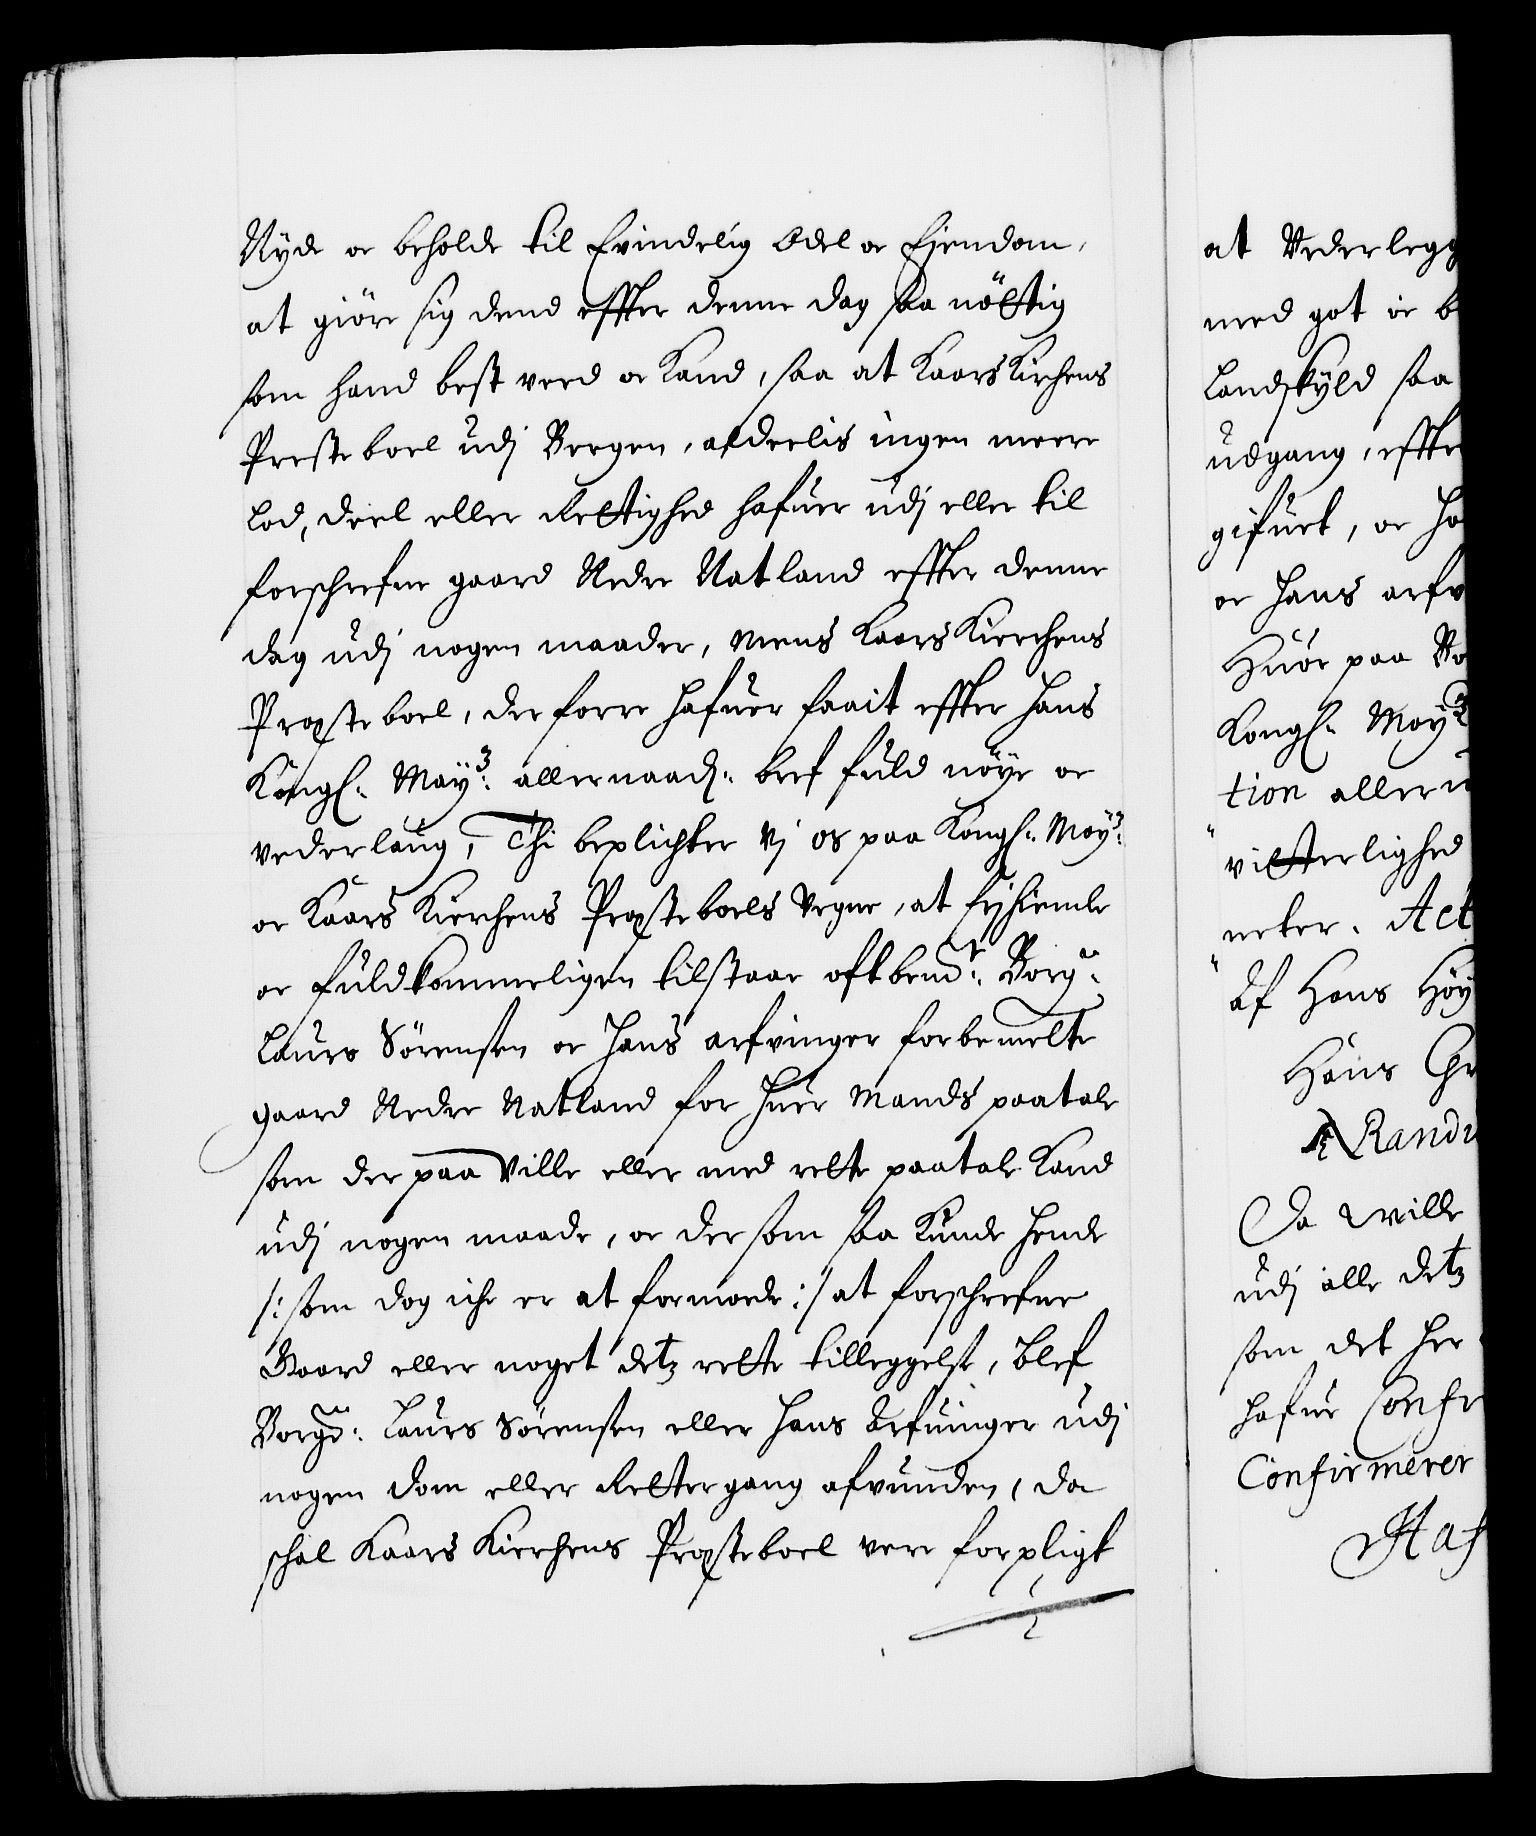 Nyde oc beholde til Evindelig Odel oc Eiendom,
at giöre sig dend effter denne dag saa nöttig
som hand best veed oc kand, saa at KaarsKirchens
Presteboel udj Bergen, aldeelis ingen meere
lod, deel eller Rettighed hafuer udj eller til
forschrefne gaard Nedre Natland effter denne
dag udj nogen maader, mens KaarsKierchens
Præsteboel, der forre hafuer faait effter Hans
Kongl. May:ᵗˢ allernaad: bref fuld nöye oc
vederlaug, Thi beplichter Vj os paa Kongl: May:ᵗˢ
oc Kaars Kierchens Præsteboels Vegne, at Ejhiemle
oc fuldkommeligen tilstaar oftbemᵗᵉ: Borg:
Laurs Sörensen oc Hans arfvinger forbemelte
gaard Nedre Natland for huer Mands paatale
som der paa Ville eller med rette paatale Kand
udj nogen maade, oc der som saa Kunde hende
/: som dog iche er at formode :/ at forschrefne
Gaard eller noget detz rette tilleggelse, blef
Borgᵐ: Laurs Sörensen eller Hans Arfuinger udj
nogen dom eller Rettergang afvunden, da
schal Kaars Kierchens Præsteboel vere forpligt
at Vederlegg
med got oc b
Landskyld saa
udgang, effte
gifuet, oc ha
oc Hans arfv
Huor paa Vo
Kongl. Mayᵗˢ
tion alleru
vitterlighed
neter. Act
Af Hans Höy
Hans Chr
Randu
Da Wille
udj alle detz
som det her
hafuer Confir
Confirmerer
Haf